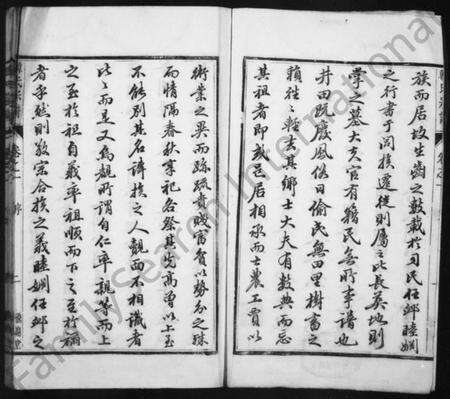 族而居故生齒之數載於司民任卹睦婣
之行書于閭族遷徙則屬之比長墓地則
掌之墓大夫官有籍民無所事譜也
井田既廢風俗日偷民無田里樹畜之
賴往往輕去其鄉士大夫有數典而忘
其祖者即或居相承而士農工賈以
術業之異而踈疏貴賤富貧以勢分之殊
而情隔春秋享祀名祭其高曾以上互
不能別其名諱族之人覿面不相識者
比比而是又烏覩所謂自仁率親等而上
之至於祖自義率祖順而下之至於禰
者乎然則敦宗合族之義睦婣任卹之
卷之一
序
FamilySearch International